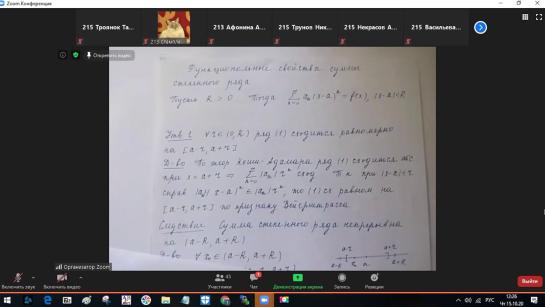 Zoom Конференция
215 Троянок Та...
213 Афонина А...
215 Трунов Ник...
215 Некрасов А...
215 Васильева...
Открыть видео
Функциональные свойства суммы
степенного ряда
Пусть R > 0 Тогда ∑ aₙ(x-a)ⁿ = f(x), |x-a|<R
Утв 1 ∀ r ∈ (0, R) ряд (1) сходится равномерно
на [a-r, a+r]
Д-во По теор Коши-Адамара ряд (1) сходится абс
при x = a+r ⇒ ∑ |aₙ| rⁿ сход Т к при |x-a|<r
справ то (1) сх равном на
[a-r, a+r] по признаку Вейерштрасса
Следствие Сумма степенного ряда непрерывна
на (a-R, a+R)
Д-во ∀ ∈ (a-R, a+R)
a-r a+r
a-R a+R
Organizator Zoom
Включить звук
Включить видео
45
Участники
Чат
Демонстрация экрана
Запись
Реакции
Выйти
РУС
12:26
Чт 15.10.20